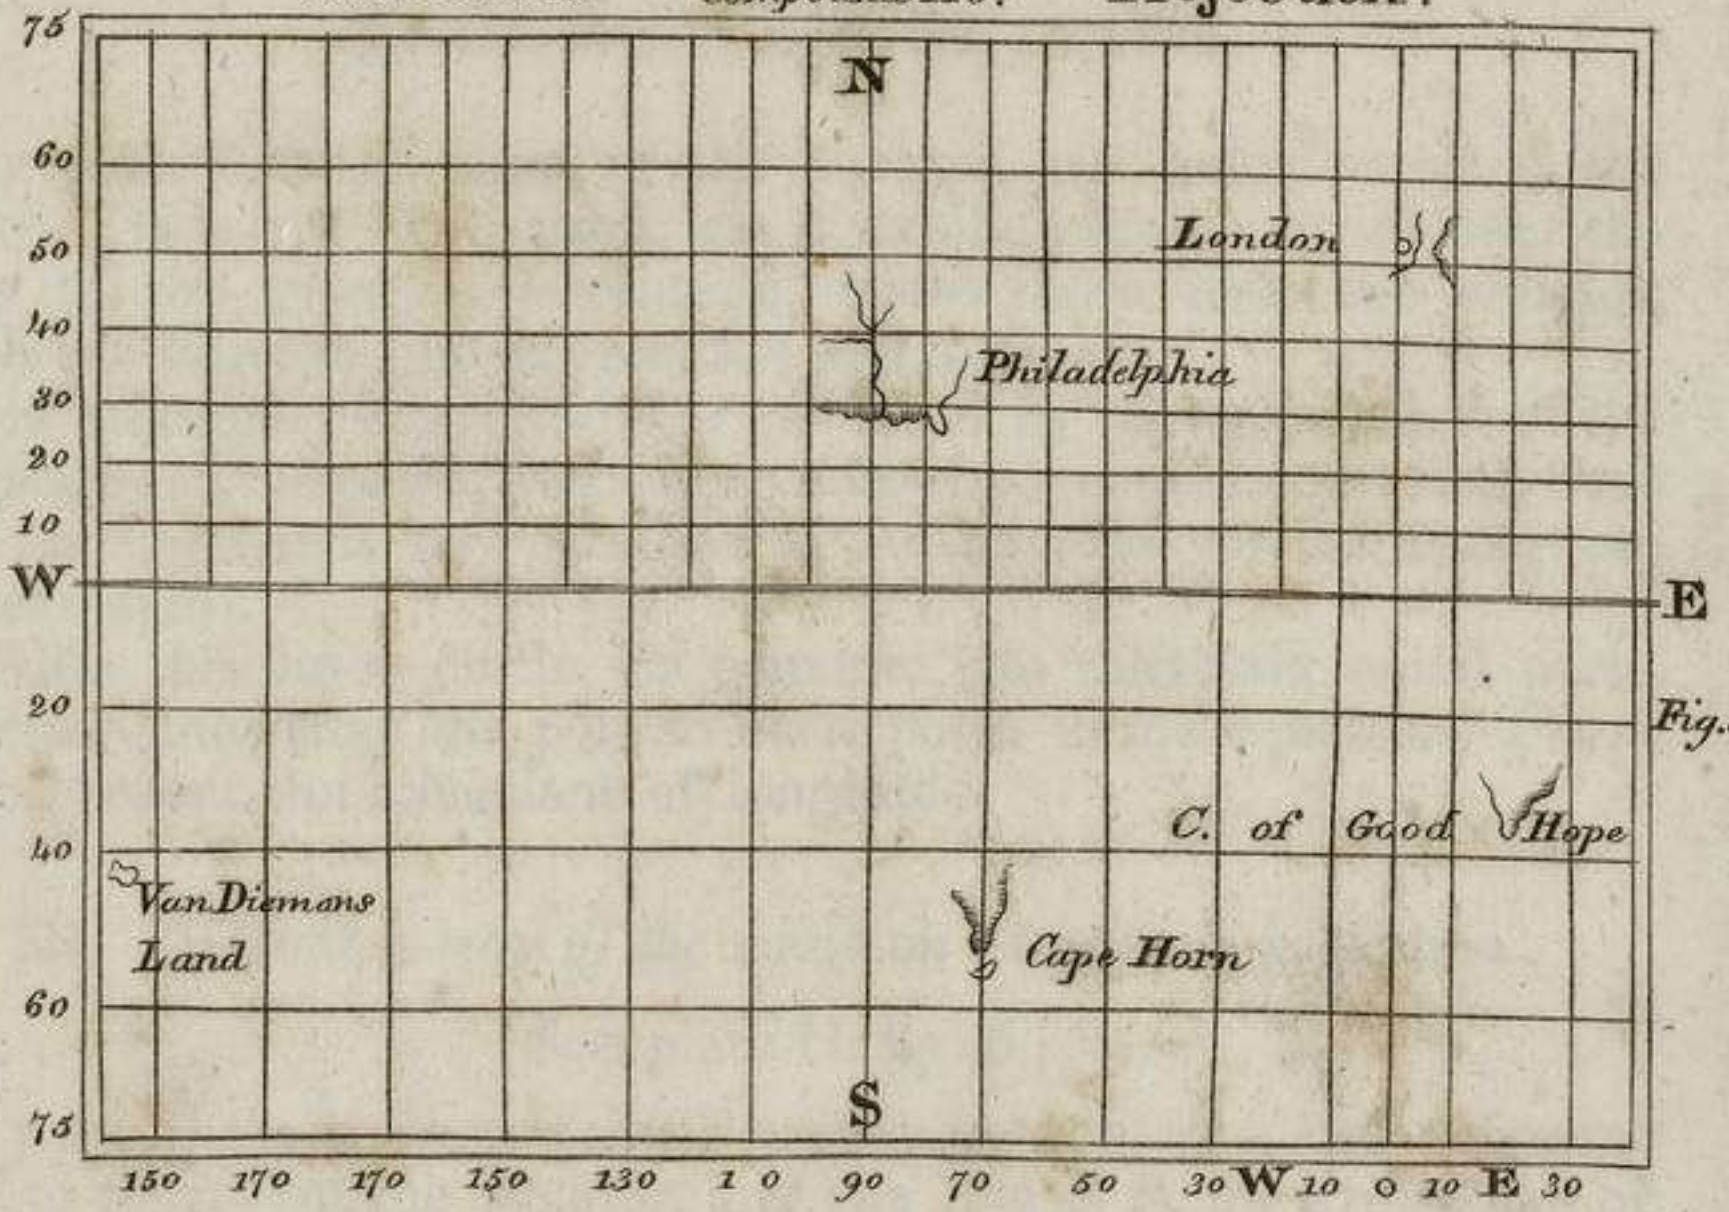 Projection.
75
N
60
London
50
40
Philadelphia
30
20
10
W E
20 Fig.
C. of Good Hope
40
Van Diemans
Land
Cape Horn
60
S
75
150 170 170 150 130 1 0 90 70 50 30 W 10 0 10 E 30